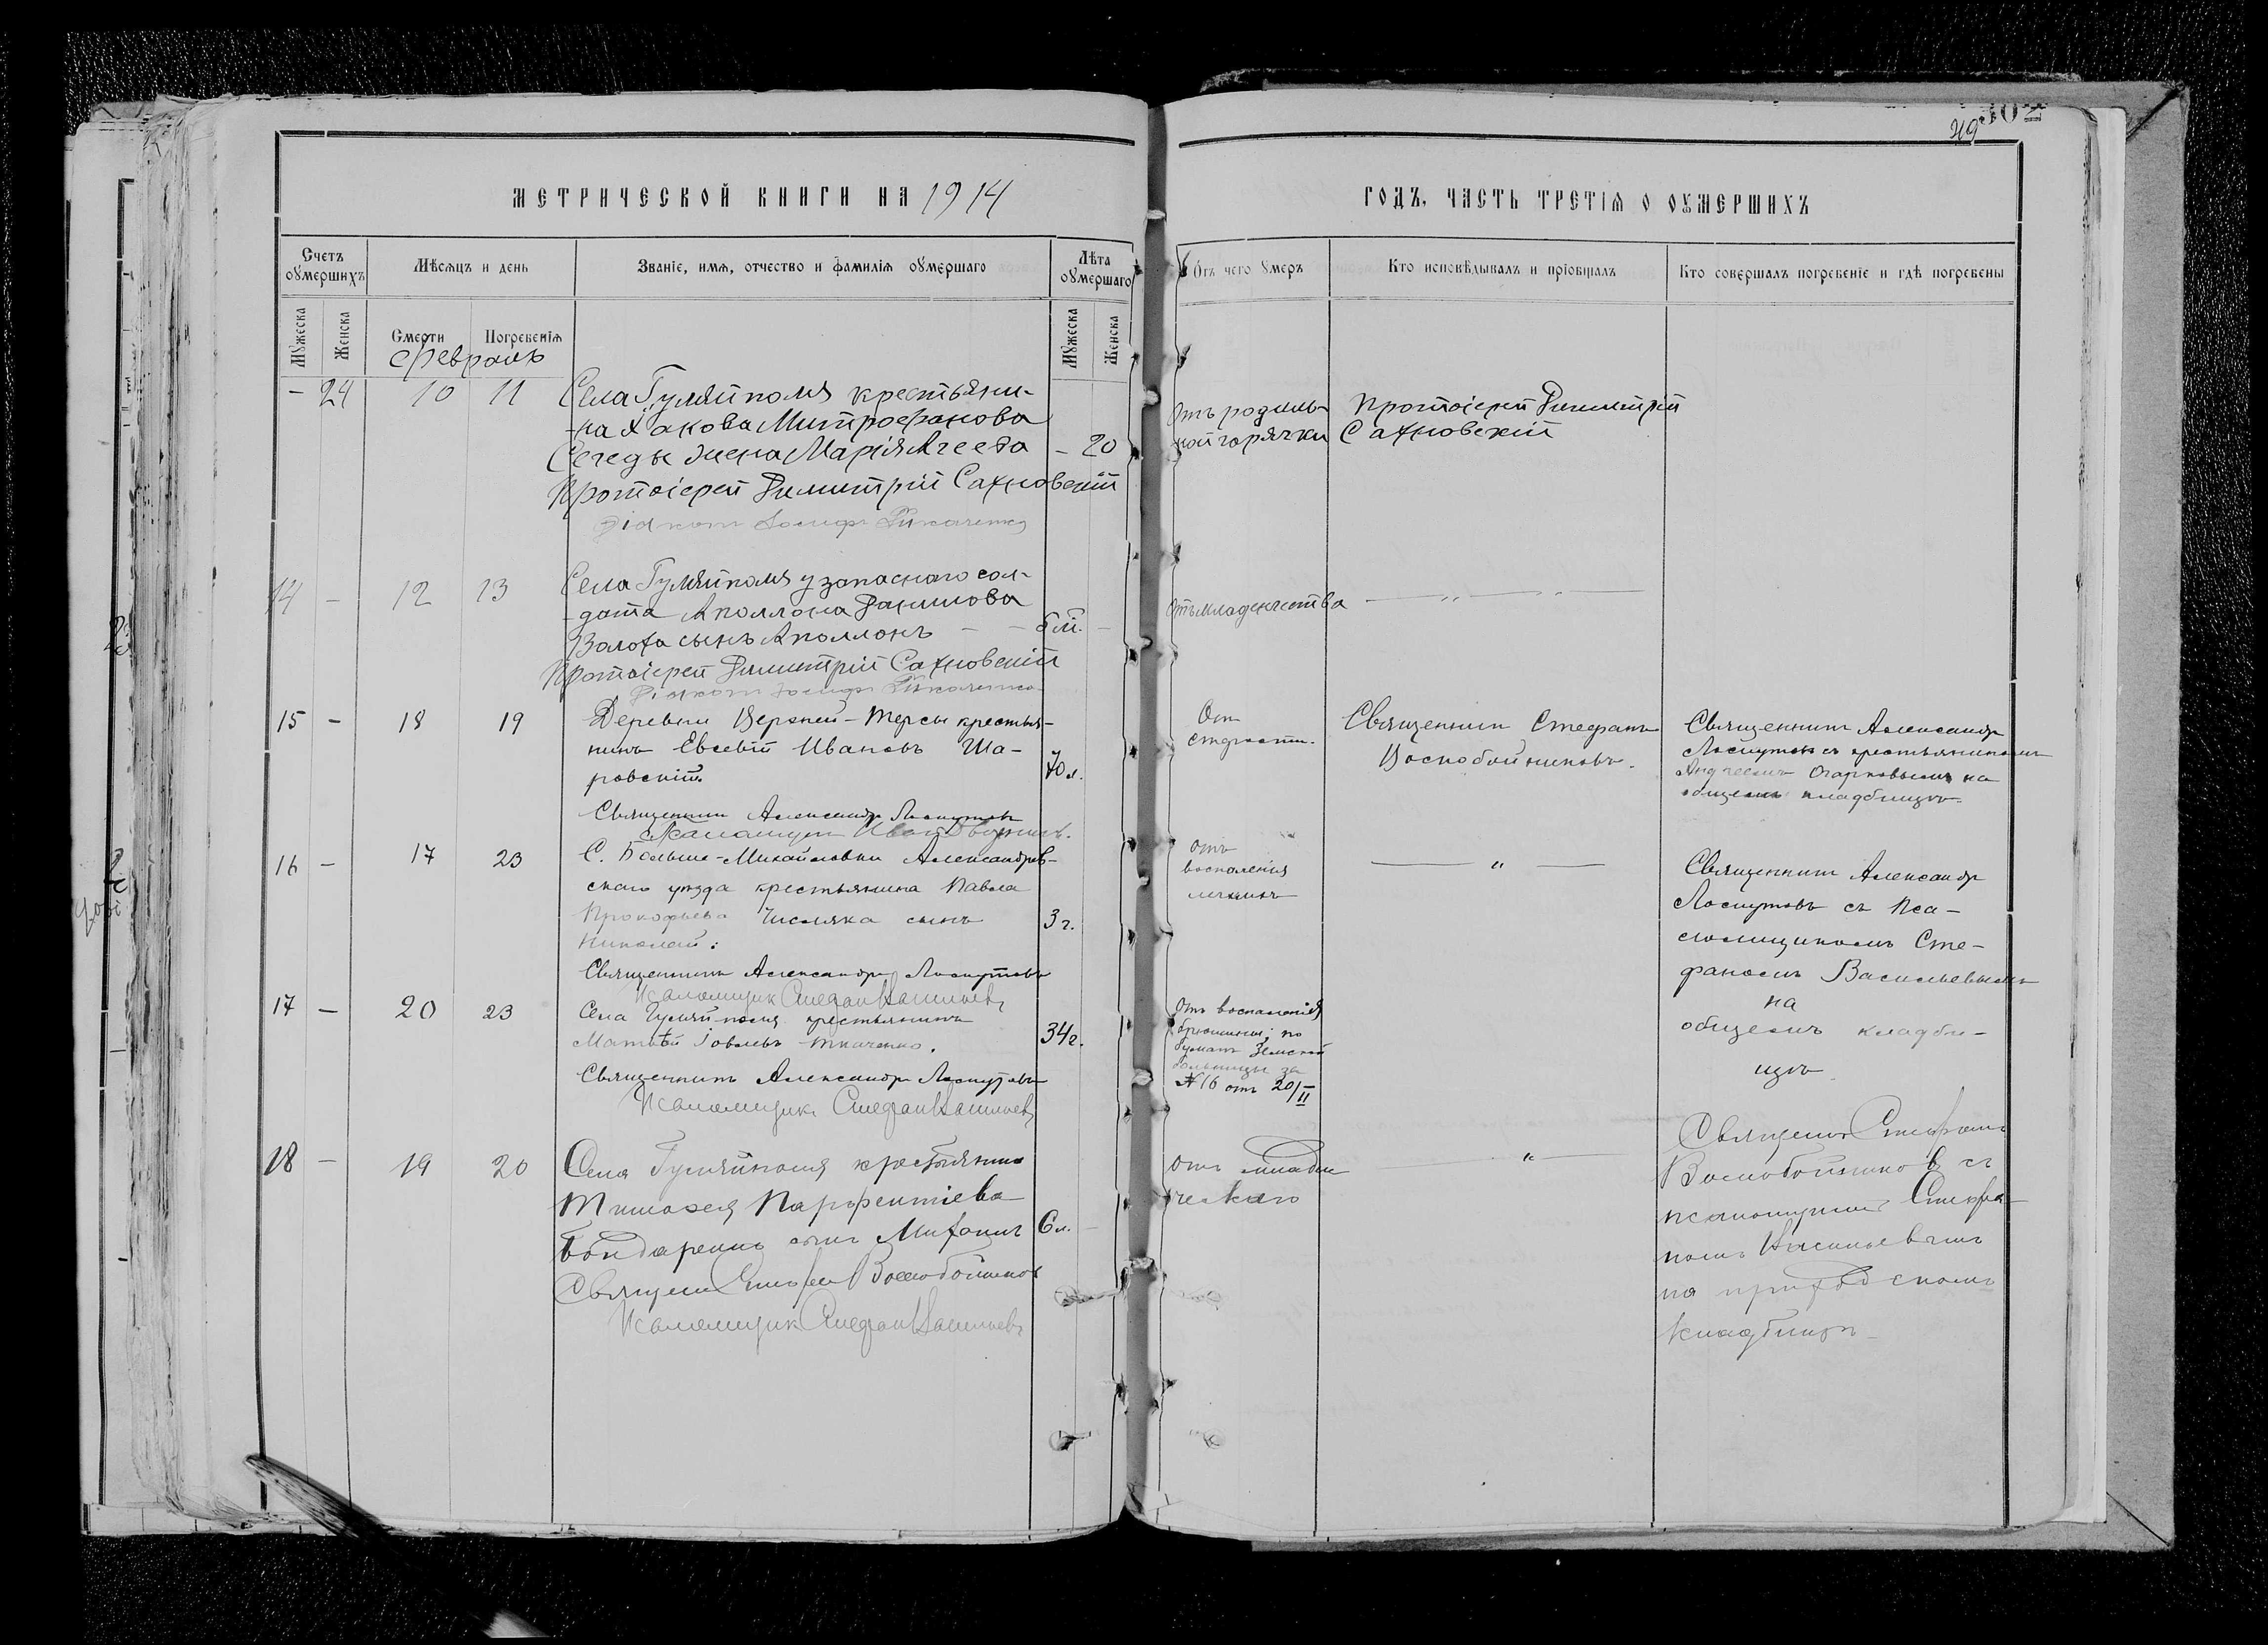 49
302
МЕТРИЧЕСКОЙ КНИГИ НА 1914
ГОДЪ, ЧАСТЬ ТРЕТІѦ О ОУМЕРШИХЪ
Счетъ оумершихъ
Мѣсѧцъ и день
Званіе, имѧ, отчество и фамиліѧ оумершаго
Лѣта оумершаго
Отъ чего умеръ
Кто исповѣдывалъ и пріобщалъ
Кто совершалъ погребеніе и гдѣ погребены
Мужеска
Женска
Смерти
Погребеніѧ
Мужеска
Женска
Февраль
- 24 10 11
Села Гуляйполя крестьяни-
на Іакова Митрофанова
Сегеды жена Марія Агеева - 20
Протоіерей Димитрій Сахновскій
Діаконъ Іосифъ Ткаченко
Отъ родиль-
ной горячки
Протоіерей Димитрій
Сахновскій
14 - 12 13
Села Гуляйполя у запаснаго сол-
дата Аполлона Данилова
Волоха сынъ Аполлонъ - - 6 м. -
Протоіерей Димитрій Сахновскій
Діаконъ Іосифъ Ткаченко
Отъ младенчества
— „ — „ —
15 - 18 19
Деревни Верхней-Терсы крестья-
нинъ Евсевій Ивановъ Ша-
ровскій
70 л.
Священник Александр Лоскутов
Псаломщик Иван
От
старости.
Священник Стефанъ
Воскобойниковъ.
Священник Александр
Лоскутовъ съ крестьяниномъ
Андреемъ Огарковымъ на
общемъ кладбищѣ.
16 - 17 23
С. Больше-Михайловки Александров-
скаго уѣзда крестьянина Павла
Прокофьева Числяка сынъ 3 г.
Николай.
Священникъ Александръ Лоскутовъ
Псаломщик Стефан Васильевъ
отъ
воспаленія
легкихъ
— „ —
Священник Александр
Лоскутовъ съ Пса-
ломщикомъ Сте-
фаномъ Васильевымъ
на
общемъ кладби-
щѣ
17 - 20 23
Села Гуляйполя крестьянинъ
Матѳей Іовлевъ Ткаченко. 34 г.
Священникъ Александр Лоскутовъ
Псаломщик Стефан Васильевъ
Отъ воспаленія
брюшины; по
бумагѣ Земской
больницы за
№ 16 отъ 20/II
18 - 19 20
Села Гуляйполя крестьянина
Тимофея Парфентіева
Бондаренко сынъ Михаилъ 6 л. -
Священ Стефан Воскобойников
Псаломщик Стефан Васильевъ
отъ младен
ческаго
— „ —
Священ Стефанъ
Воскобойников съ
псаломщиком Стефа-
номъ Васильевымъ
на приходскомъ
кладбищѣ